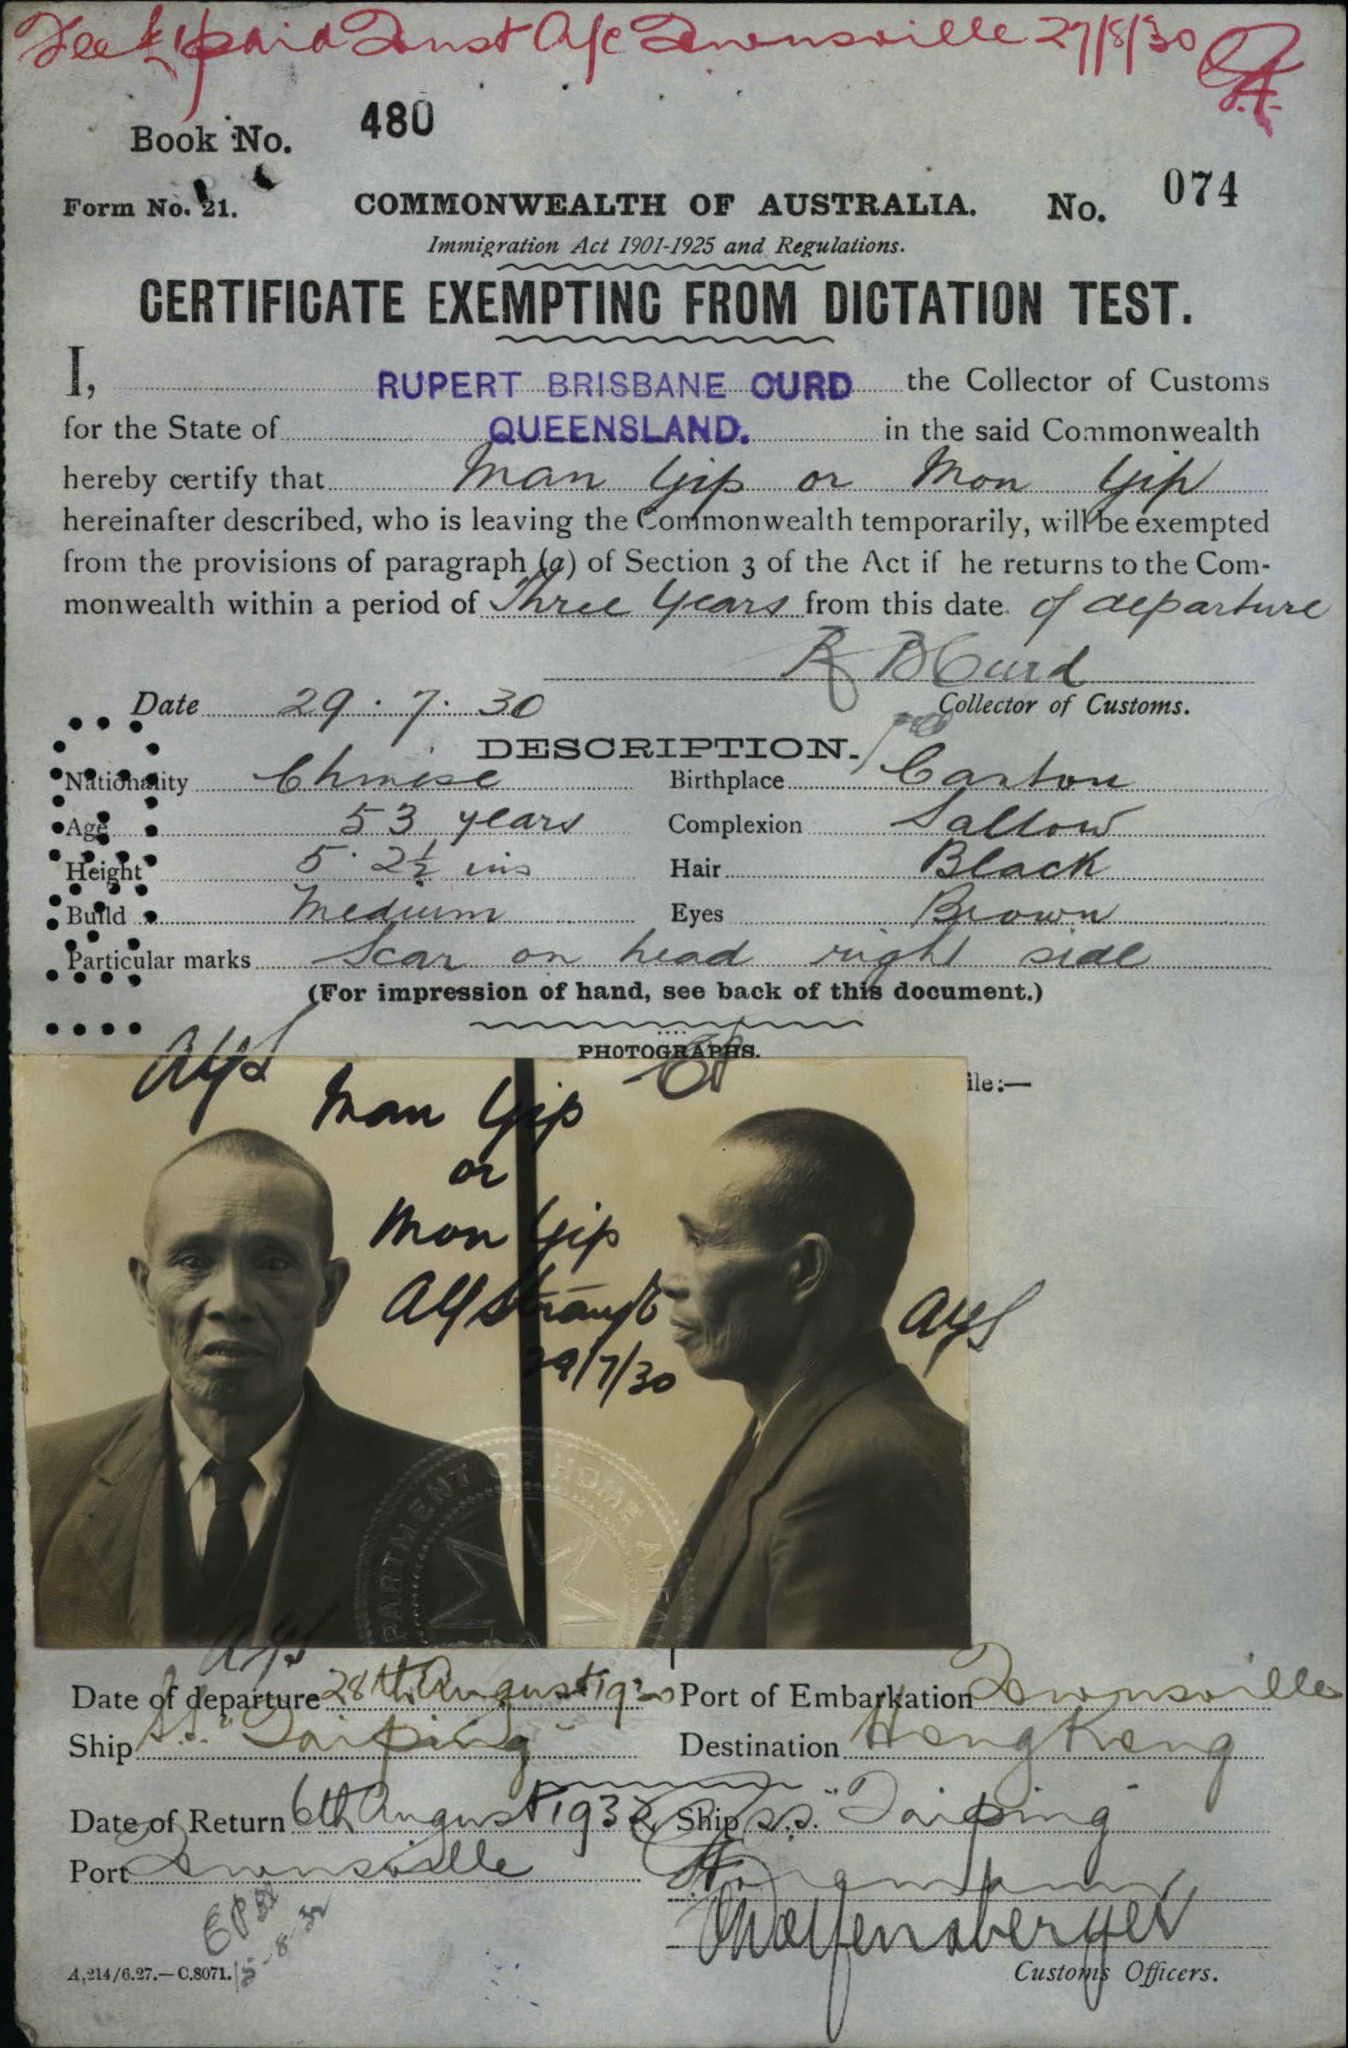 Fee £1 paid Trust A/c Townsville 27/8/30
Book No. 480
Form No. 21. COMMONWEALTH OF AUSTRALIA. No. 074
Immigration Act 1901-1925 and Regulations.
CERTIFICATE EXEMPTING FROM DICTATION TEST.
I, RUPERT BRISBANE CURD the Collector of Customs
for the State of QUEENSLAND. in the said Commonwealth
hereby certify that Man Yip or Mon Yip
hereinafter described, who is leaving the Commonwealth temporarily, will be exempted
from the provisions of paragraph (a) of Section 3 of the Act if he returns to the Com-
monwealth within a period of Three Years from this date of departure
R B Curd
Date 29.7.30 Collector of Customs.
DESCRIPTION.
Nationality Chinese Birthplace Canton
Age 53 years Complexion Sallow
Height 5. 2½ ins Hair Black
Build Medium Eyes Brown
Particular marks Scar on head right side
(For impression of hand, see back of this document.)
PHOTOGRAPHS.
ile:—
Man Yip
or
Mon Yip
29/7/30
PARTMENT OF HOME AFFA
Date of departure 28th August 1930 Port of Embarkation Townsville
Ship s.s. "Taiping" Destination Hong Kong
Date of Return 6th August 1932 Ship s.s. "Taiping"
Port Townsville
Wolfensberger
15-8-32
A,214/6.27.—C.8071. Customs Officers.